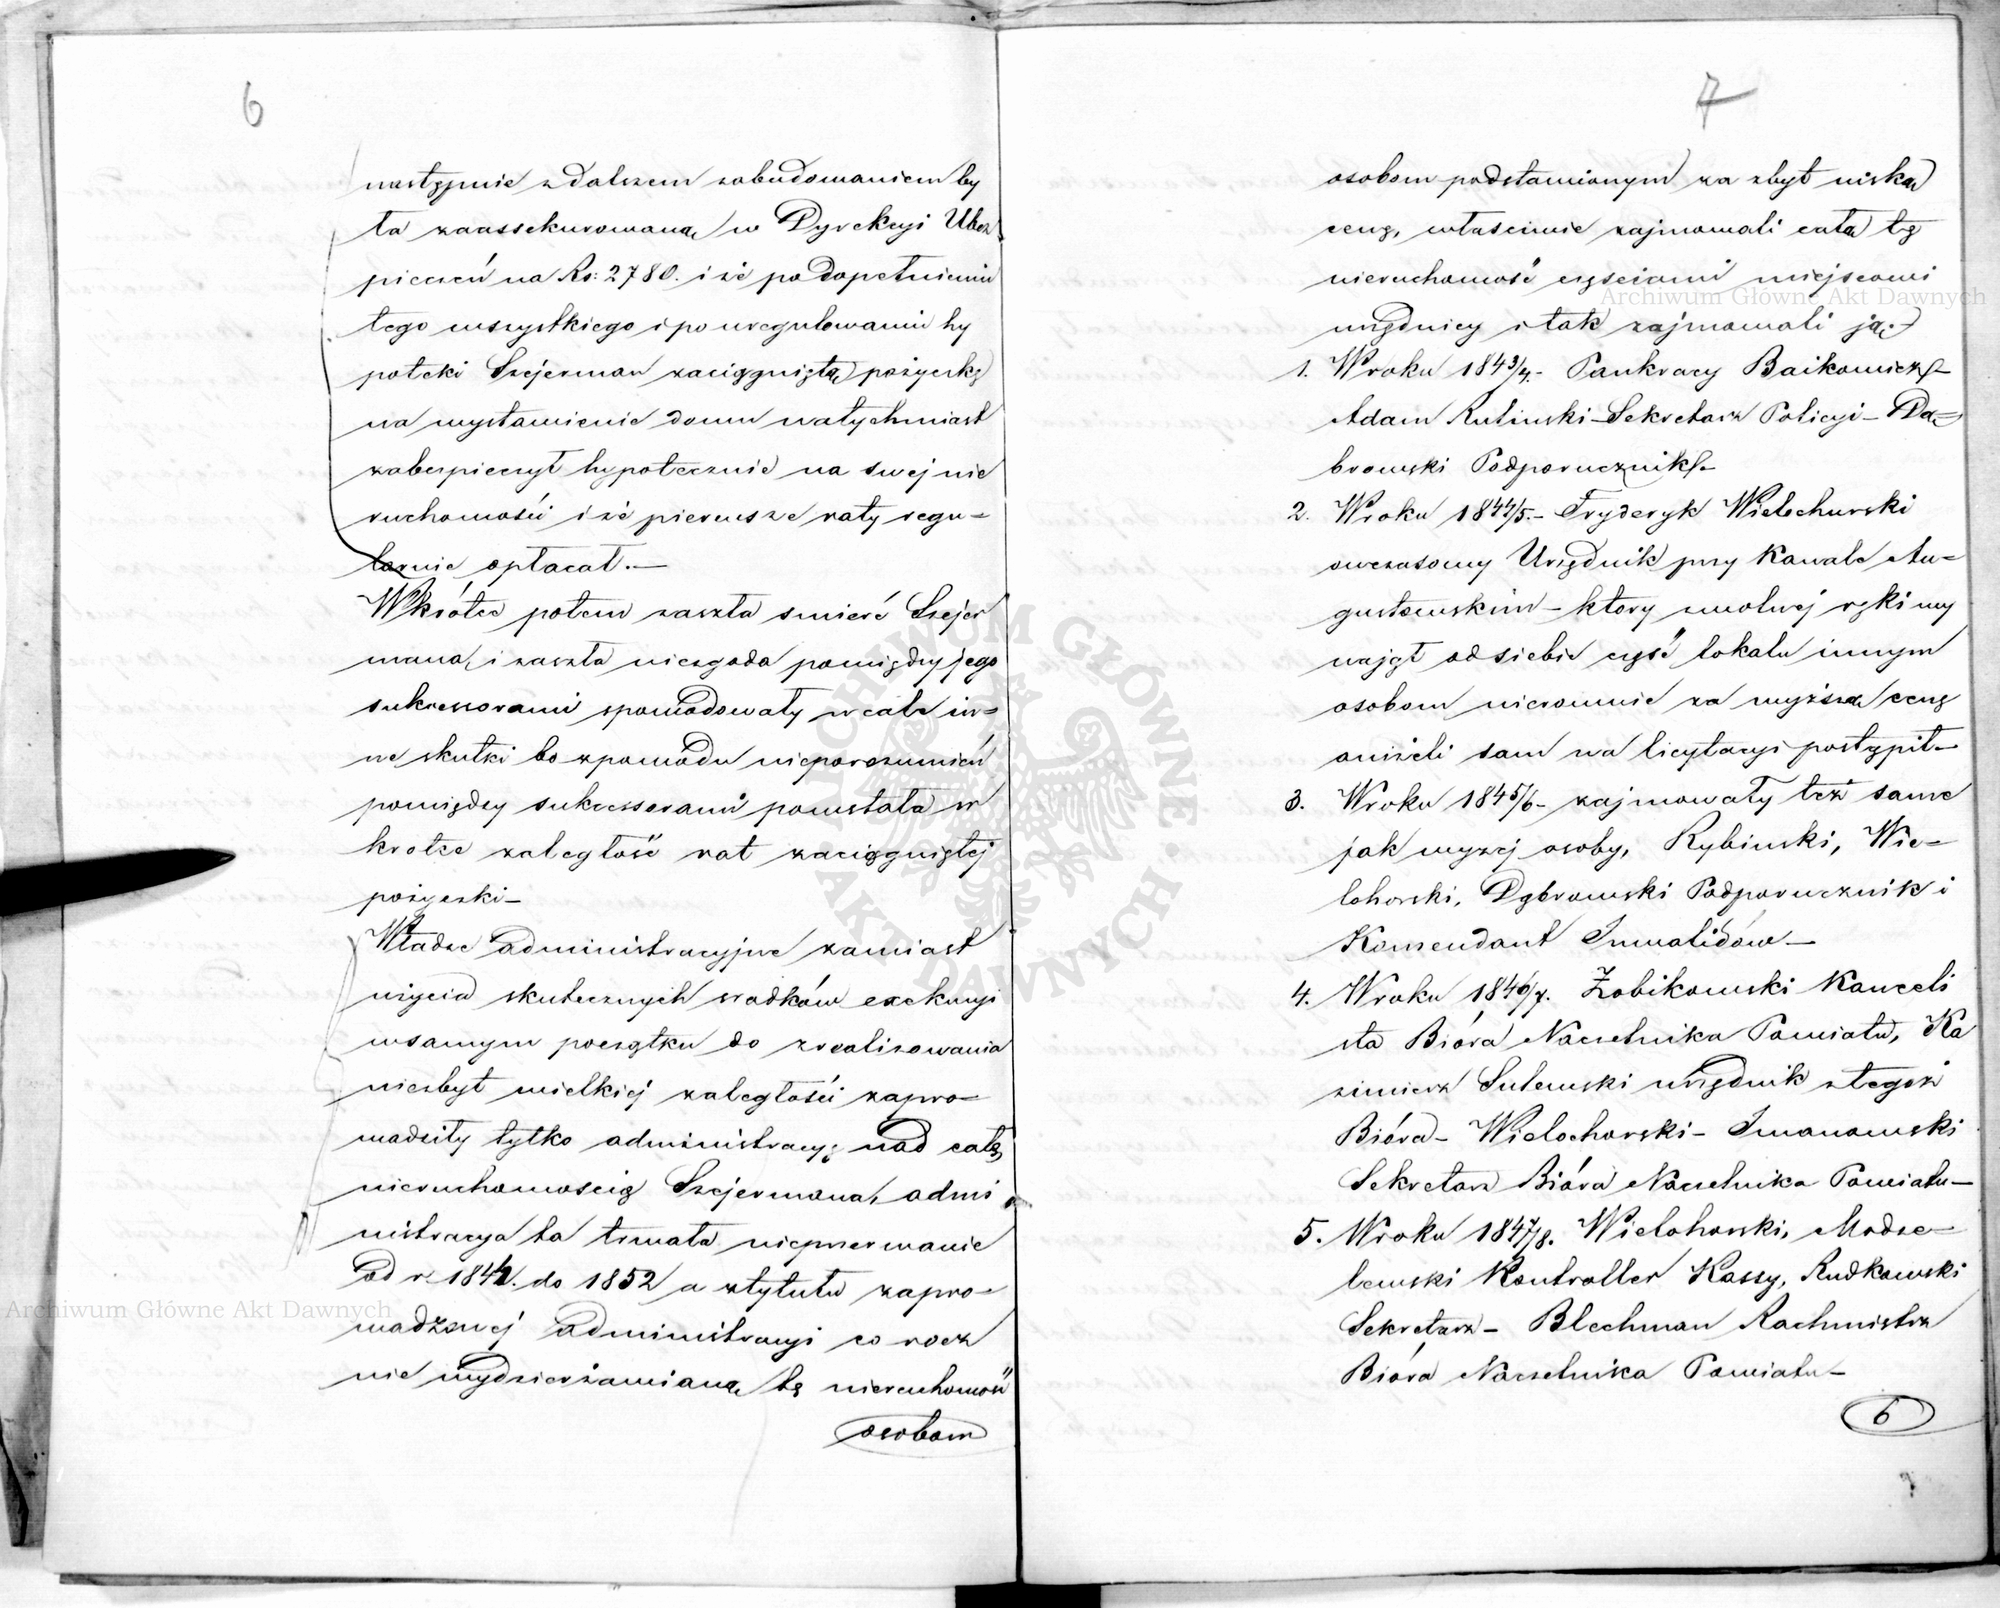 6
następnie z dalszem zabudowaniem by
ła zaassekurowaną w Dyrekcyi Ubez
pieczeń na Rs: 2780. i że po dopełnieniu
tego wszystkiego i po uregulowaniu hy
poteki Szejerman zaciągniętą pożyczkę
na wystawienie domu natychmiast
zabezpieczył hypotecznie na swej nie
ruchomości i że pierwsze raty regu=
larnie opłacał.—
Wkrótce potem zaszła smierć Szejer
mana, i zaszła niezgoda pomiędzy jego
sukcessorami spowodowały wcale in=
ne skutki bo z powodu nieporozumień
pomiędzy sukcessorami powstała w
krotce zaległość rat zaciągniętej
pożyczki—
Władze administracyjne zamiast
użycia skutecznych sradków exekucyi
w samym początku do zrealizowania
niezbyt wielkiej zaległości zapro=
wadziły tylko administracyę nad całą
nieruchomością Szejermana, admi
nistracya ta trwała nieprzerwanie
od r. 1842. do 1852 a z tytułu zapro=
wadzonej administracyi co rocz
nie wydzierżawianą tę nieruchomość
osobom
7
osobom podstawionym za zbyt niską
cenę, właściwie zajmowali całą tę
nieruchomość częściami miejscowi
urzędnicy i tak zajmowali ją:
1. W roku 1843/4.- Pankracy Baikowicz
Adam Rutinski-Sekretarz Policyi- Dą=
browski Podporucznik
2. W roku 1844/5.- Fryderyk Wielochurski
owczasowy Urzędnik przy Kanale Au=
gustowskim- ktory z wolnej ręki wy
najął od siebie część lokalu innym
osobom nierownie za wyższą cenę
aniżeli sam na licytacyi postąpił—
3. W roku 1845/6- zajmowały też same
jak wyżej osoby, Rybinski, Wie=
lohorski, Dąbrowski Podporucznik i
Komendant Inwalidów—
4. W roku 1846/7. Żobikowski Kanceli
sta Bióra Naczelnika Powiatu, Ka
zimierz Sulewski urzędnik z tegoż
Bióra- Wielochorski- Iwanowski
Sekretarz Bióra Naczelnika Powiatu—
5. W roku 1847/8. Wielohorski, Modze=
lewski Kontroller Kassy, Rudkowski
Sekretarz- Blechman Rachmistrz
Bióra Naczelnika Powiatu—
6
Archiwum Główne Akt Dawnych
Archiwum Główne Akt Dawnych
ARCHIWUM GŁÓWNE AKT DAWNYCH